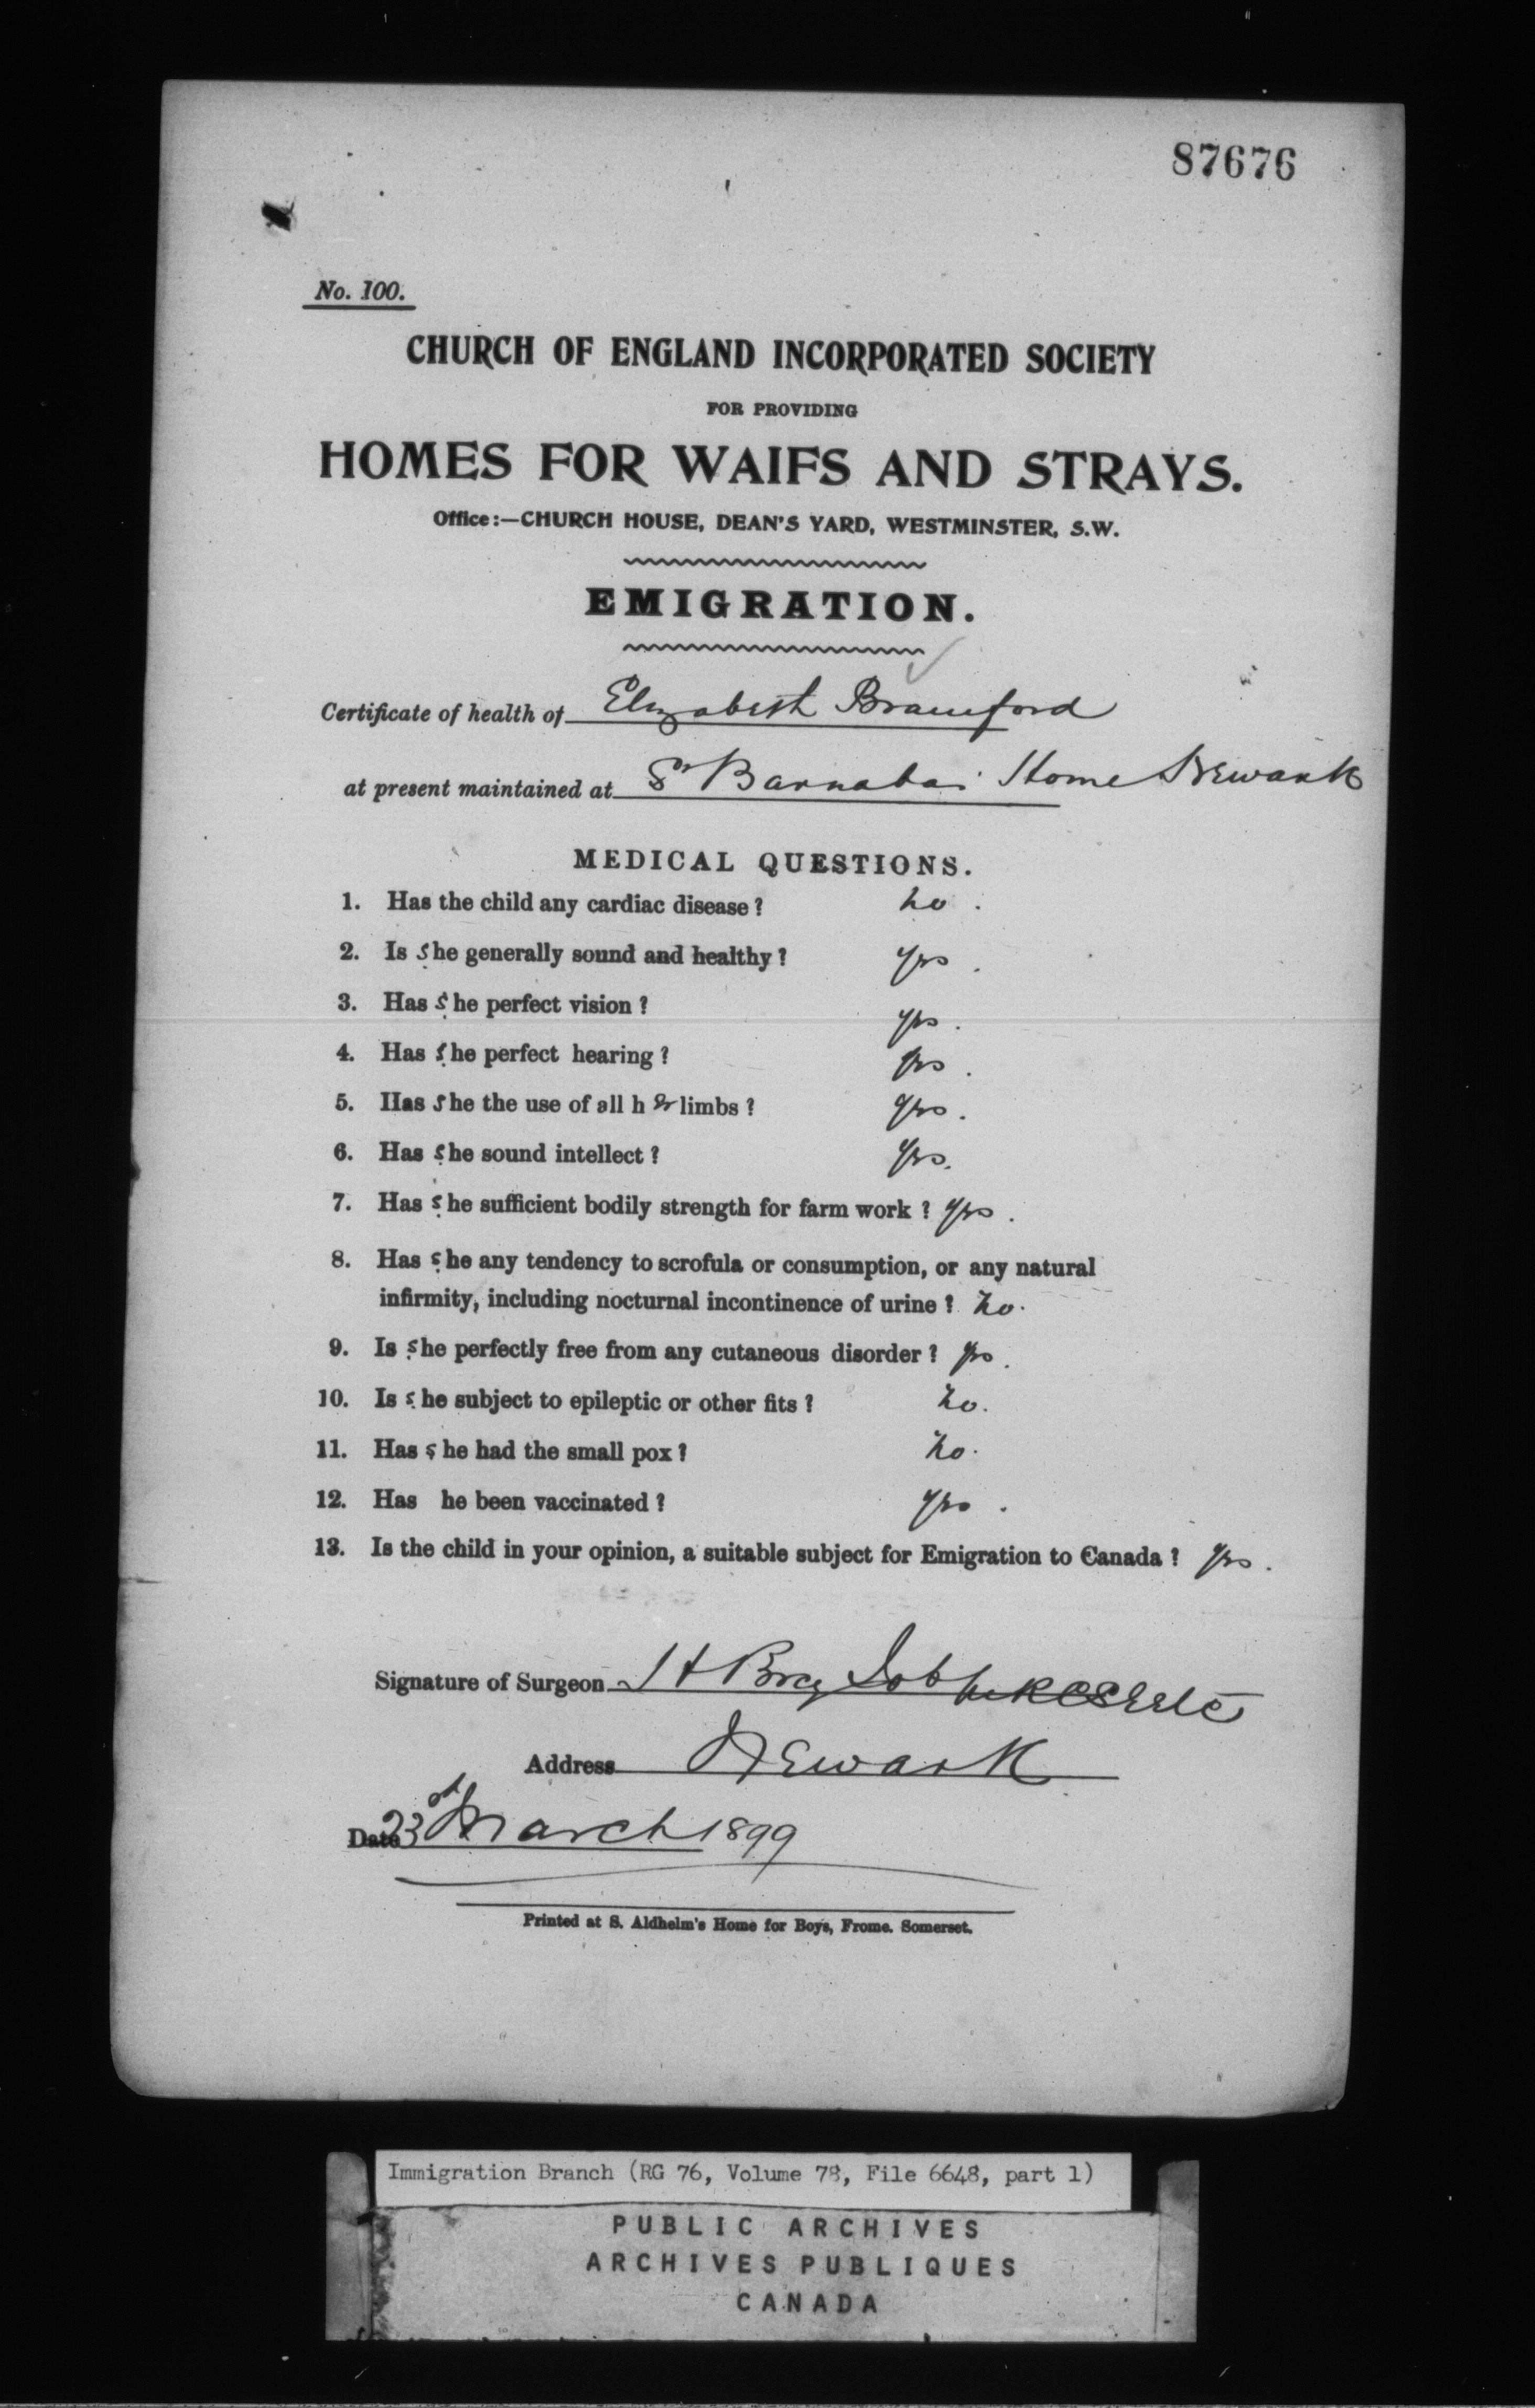 87676
No. 100.
CHURCH OF ENGLAND INCORPORATED SOCIETY
FOR PROVIDING
HOMES FOR WAIFS AND STRAYS.
Office:—CHURCH HOUSE, DEAN'S YARD, WESTMINSTER, S.W.
EMIGRATION.
Certificate of health of Elizabeth Bramford
at present maintained at St Barnabas Home Newark
MEDICAL QUESTIONS.
1. Has the child any cardiac disease? no.
2. Is she generally sound and healthy? yes.
3. Has she perfect vision? yes.
4. Has she perfect hearing? yes.
5. Has she the use of all her limbs? yes.
6. Has she sound intellect? yes.
7. Has she sufficient bodily strength for farm work? yes.
8. Has she any tendency to scrofula or consumption, or any natural
infirmity, including nocturnal incontinence of urine? no.
9. Is she perfectly free from any cutaneous disorder? yes.
10. Is she subject to epileptic or other fits? no.
11. Has she had the small pox? no.
12. Has he been vaccinated? yes.
13. Is the child in your opinion, a suitable subject for Emigration to Canada? yes.
Signature of Surgeon
Address Newark
Date 23rd March 1899
Printed at S. Aldhelm's Home for Boys, Frome. Somerset.
Immigration Branch (RG 76, Volume 78, File 6648, part 1)
PUBLIC ARCHIVES
ARCHIVES PUBLIQUES
CANADA